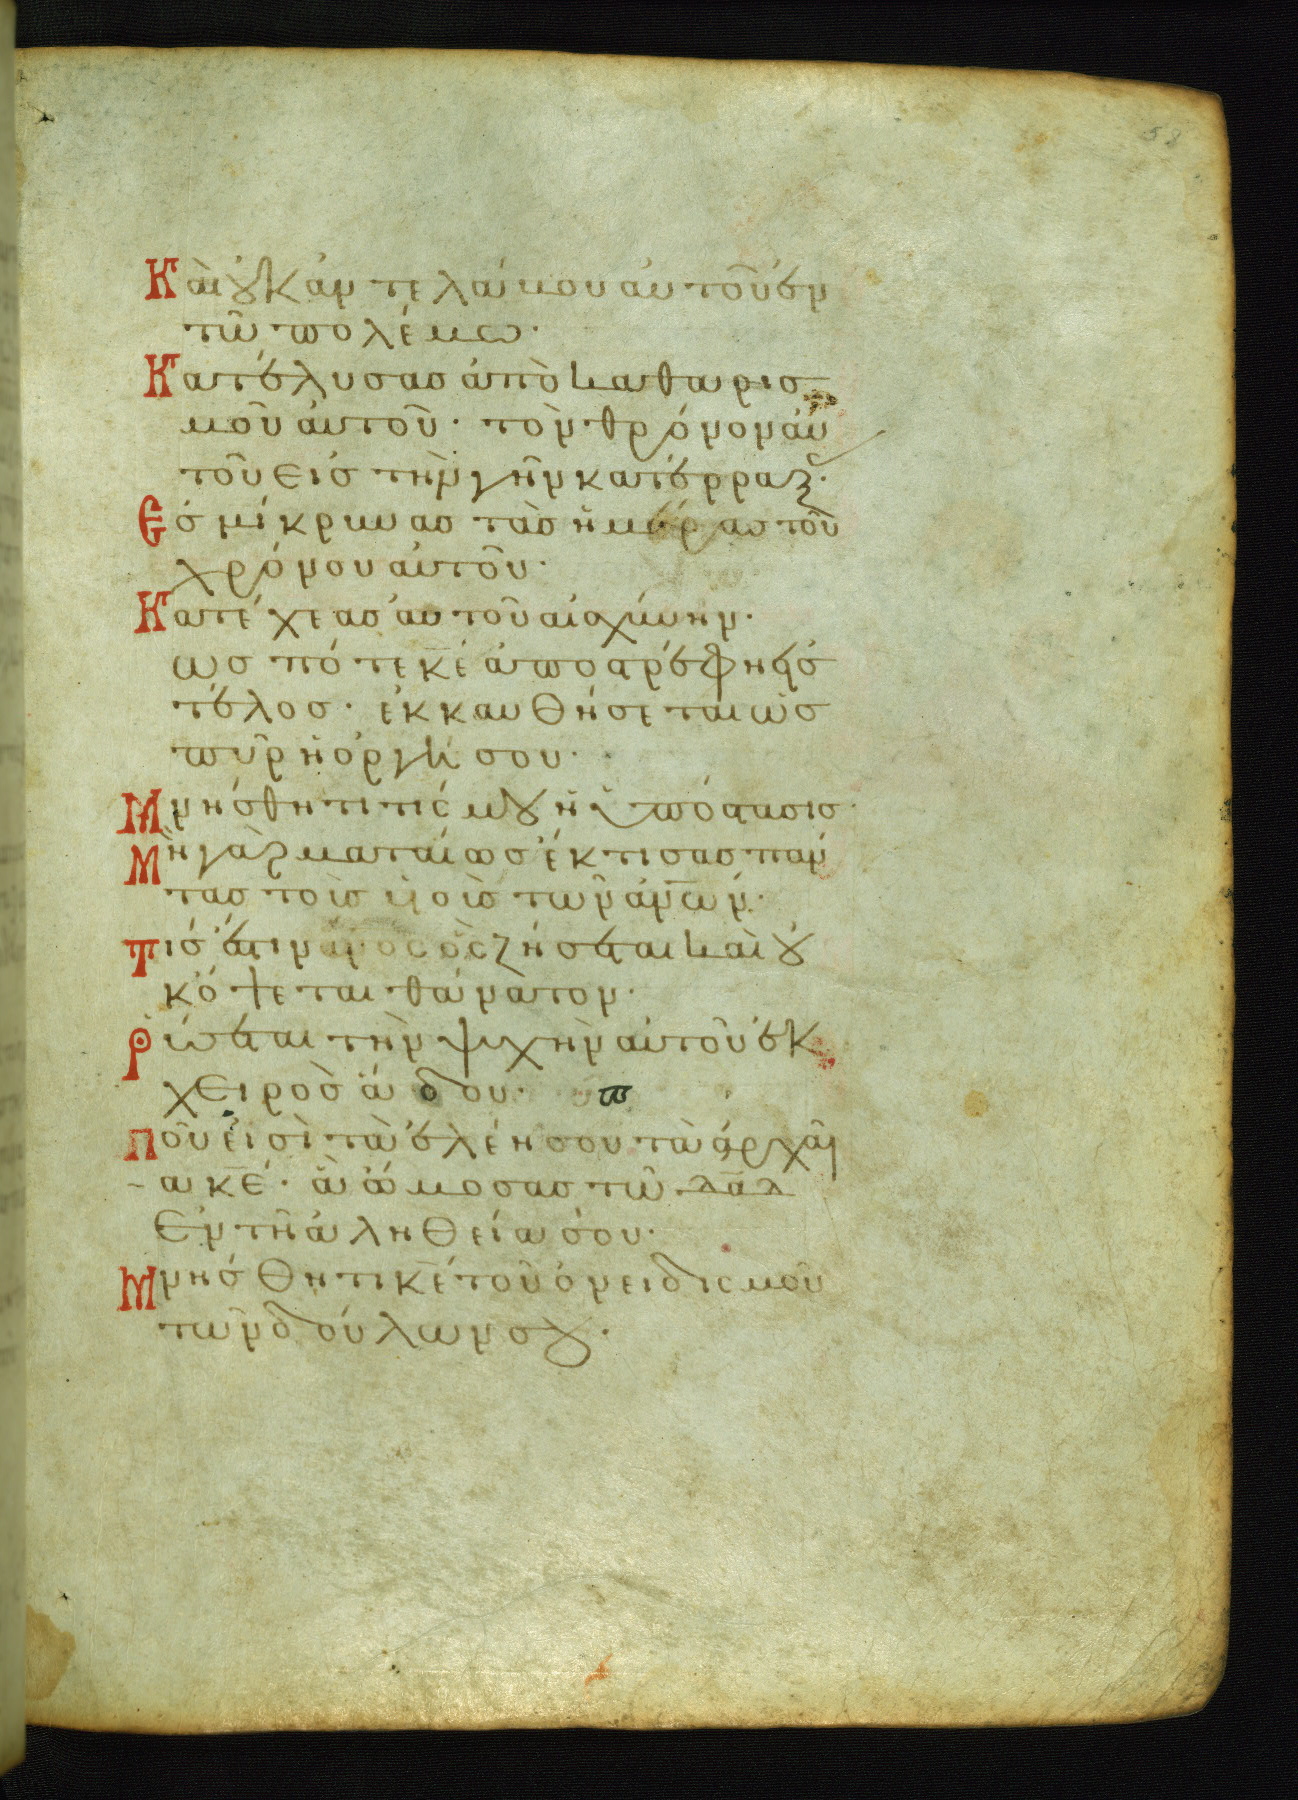 58
Καὶ οὐκ ἀντελάβου αὐτοῦ ἐν
τῶ πολέμω·
Κατέλυσας ἀπὸ καθαρισ
μοῦ αὐτοῦ· τὸν θρόνον αὐ
τοῦ εἰς τὴν γῆν κατέρραξ·
Ἐσμίκρυνας τὰς ἡμέρας τοῦ
χρόνου αὐτοῦ·
Κατέχεας αὐτοῦ αἰσχύνην·
ὡς πότε κ̅ε̅ ἀποστρέφη εἰς
τέλος· ἐκκαυθήσεται ὡς
πῦρ ἡ ὀργή σου·
Μνήσθητι τίς μου ἡ ὑπόστασις·
Μὴ γὰρ ματαίως ἔκτισας πάν
τας τοὺς υἱοὺς τῶν α̅ν̅ω̅ν̅·
Τίς ἐστιν ἄν̅ο̅ς̅ ὃς ζήσεται καὶ οὐ
κ ὄψεται θάνατον·
Ῥύσεται τὴν ψυχὴν αὐτοῦ ἐκ
χειρὸς ἅδου·
Ποῦ εἰσὶ τὰ ἐλέη σου τὰ ἀρχαῖ
α κ̅ε̅· ἃ ὤμοσας τῶ δ̅α̅δ̅
Ἐν τῆ ἀληθεία σου·
Μνήσθητι κ̅ε̅ τοῦ ὀνειδισμοῦ
τῶν δούλων σου·